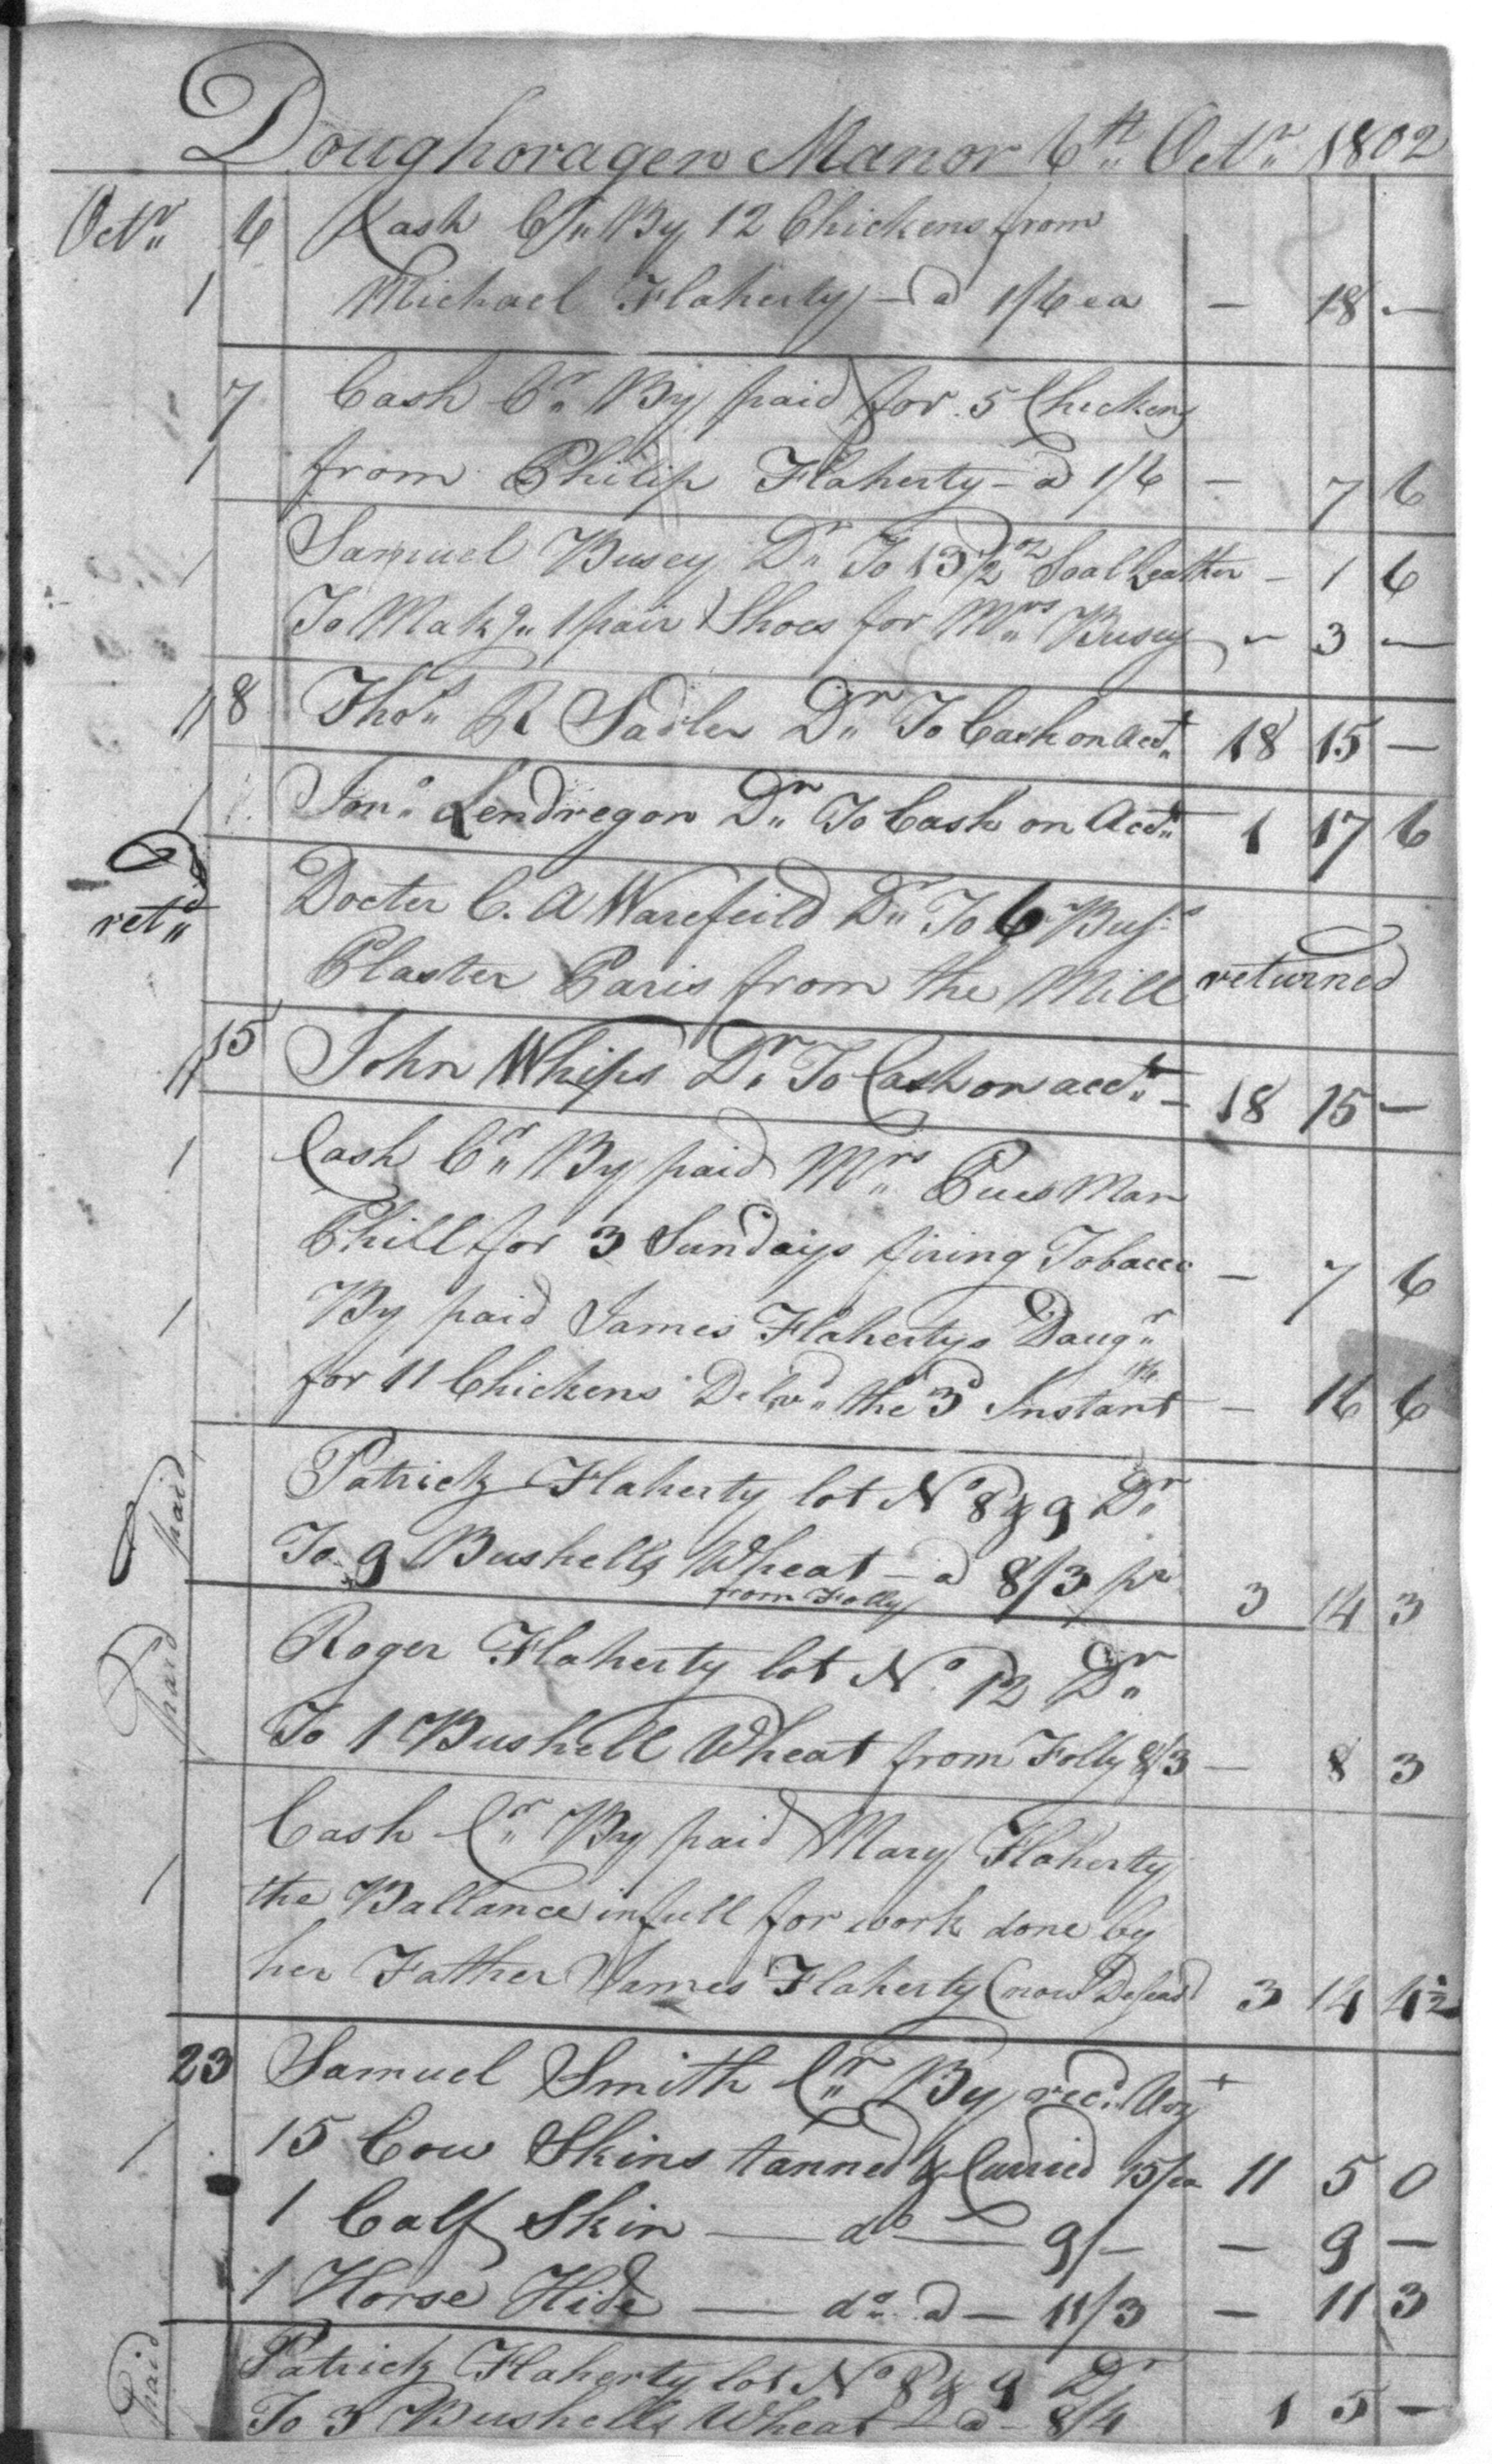 Doughoragen Manor 6th Octr 1802
Octr 6 Cash Cr By 12 Chickens from
1 Michael Flaherty - a 1/6 ea - 18 -
7 Cash Cr By paid for 5 Chickens
1 from Philip Flaherty - a 1/6 - 7 6
1 Samuel Busey Dr To 13 1/2 oz Soal Leather - 1 6
To Makg 1 pair Shoes for Mrs Busey - 3 -
11 8 Thos R Sadler Dr To Cash on Acct 18 15 -
1 Jno Lendregon Dr To Cash on Acct 1 17 6
retd Docter C. A Warefeild Dr To 6 Bus
Plaster Paris from the Mill returned
11 15 John Whips Dr To Cash on acct - 18 15 -
1 Cash Cr By paid Mrs Pues Man
Phill for 3 Sundays firing Tobacco - 7 6
1 By paid James Flahertys Daugr
for 11 Chickens Delvd the 3d Instant 1/6 - 16 6
paid Patrick Flaherty lot No 8 & 9 Dr
To 9 Bushells Wheat - a 8/3 pr 3 14 3
from Folly
paid Roger Flaherty lot No 12 Dr
To 1 Bushell Wheat from Folly 8/3 - 8 3
Cash Cr By paid Mary Flaherty
1 the Ballance in full for work done by
her Father James Flaherty (now Deseasd 3 14 4 1/2
23 Samuel Smith Cr By recd
1 15 Cow Skins tanned & Curried 15/ea 11 5 0
1 Calf Skin — do — 9/- - 9 -
1 Horse Hide — do a - 11/3 - 11 3
paid Patrick Flaherty lot No 8 & 9 Dr
To 3 Bushells Wheat - a - 8/4 1 5 -